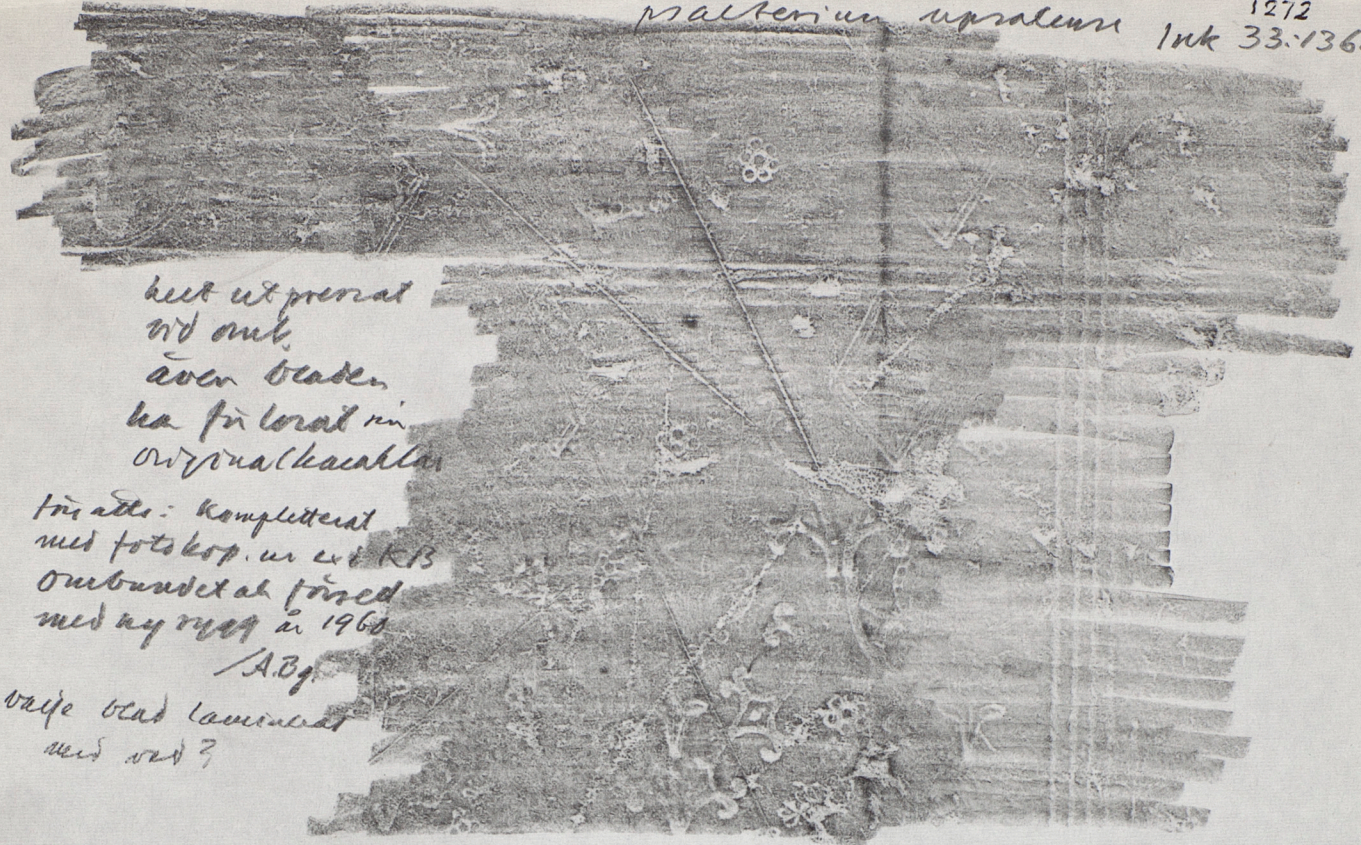 psalterium upsalense
1272
Ink 33:136
helt utpressat
vid omb.
även bladen
har förlorat sin
originalkaraktär
för.ätts: kompletterat
med fotokop. ur ex i KB
ombundet och försed
med ny rygg år 1960
/A.Bg.
varje blad laminerat
med vad?